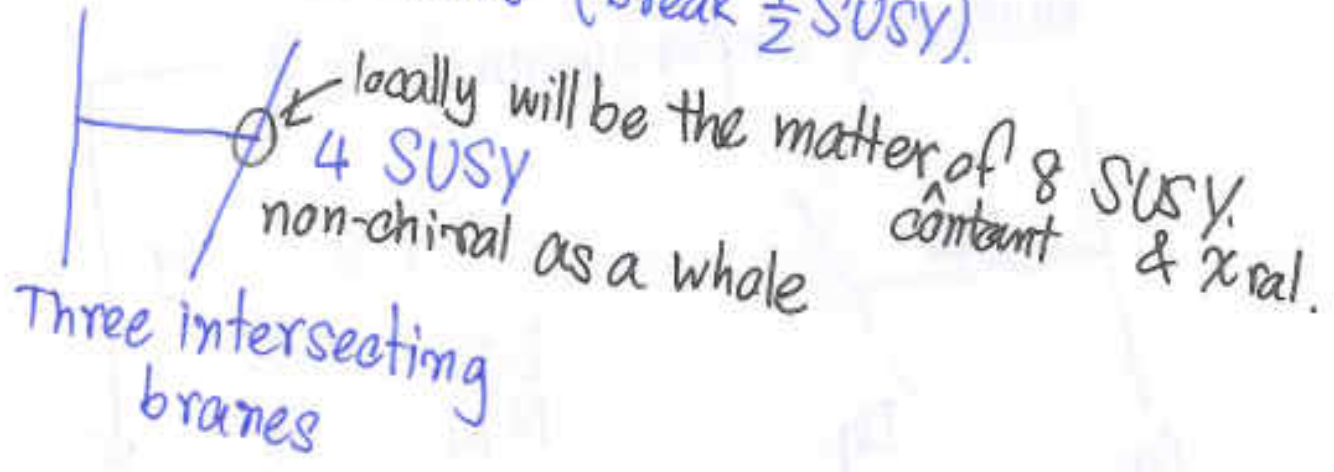 (break ½ SUSY).
locally will be the matter of 8 SUSY.
contant & χral.
4 SUSY
non-chiral as a whole
Three intersecting
branes